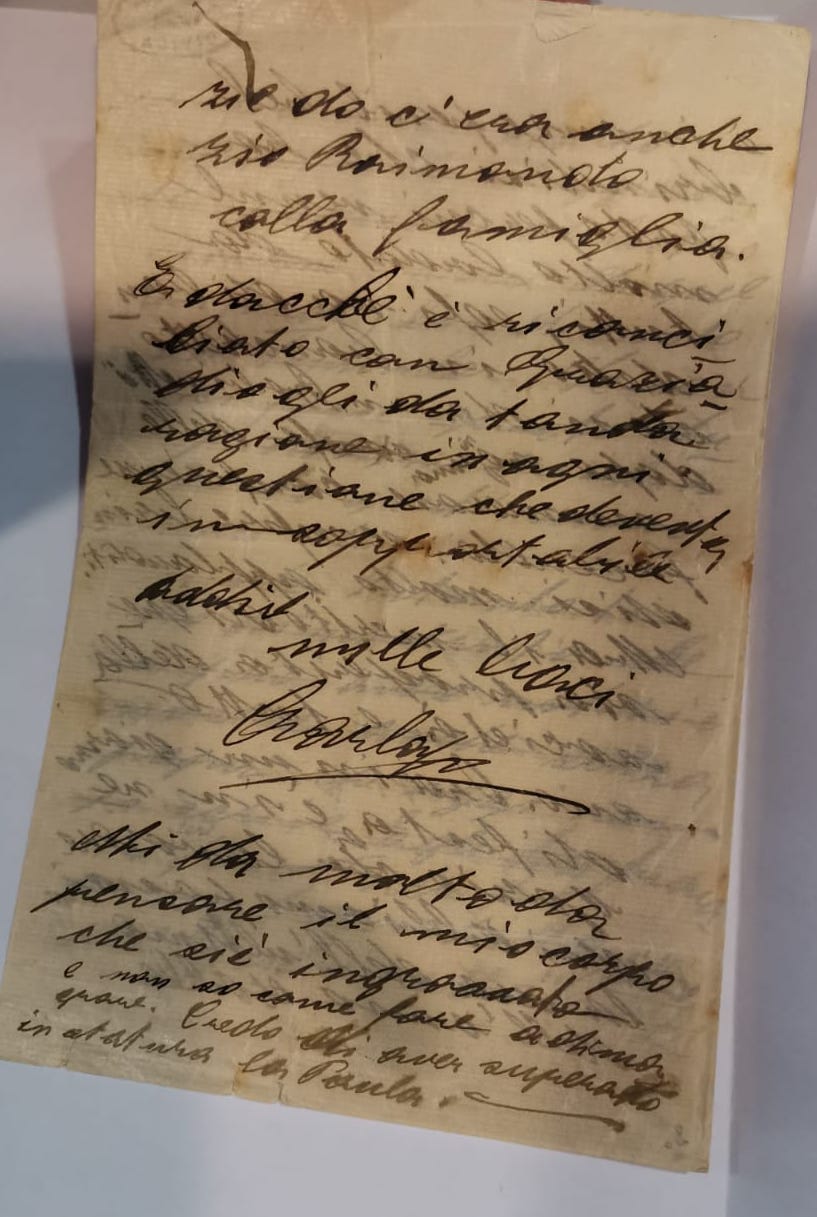 zie do c'era anche
zio Raimondo
colla famiglia.
E dacchè è riconci
liato con
gli da tanta
ragione in ogni
questione che deventa
insopportabile
Addio
mille baci
Mi da molto da
pensare il mio corpo
che si è ingrossato
e non so come fare a dima
grare. Credo di aver superato
in statura la Paula.